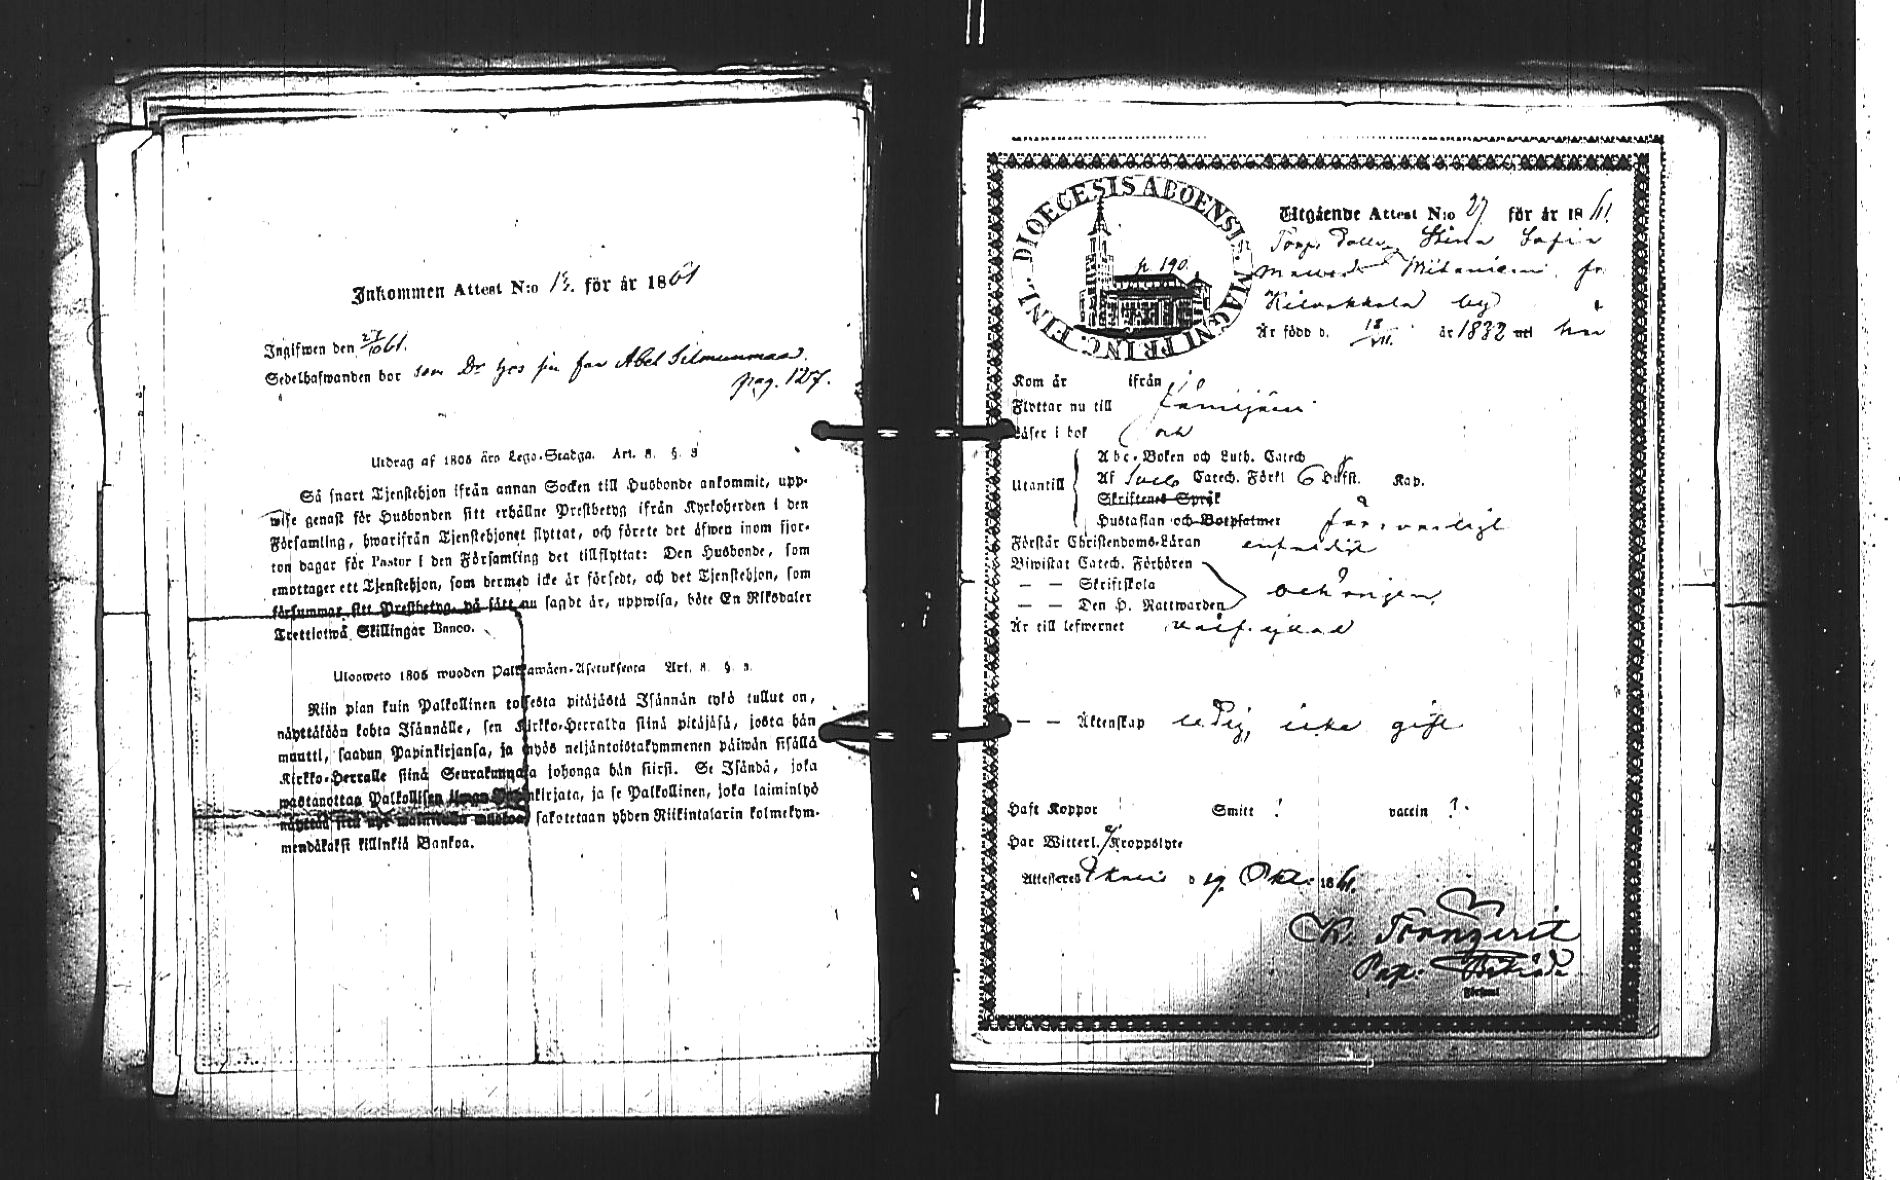 Inkommen Attest N:o 13. för år 1861
Ingifwen den 27/10 61.
Sedelhafwanden bor som Dr hos sin far Abel Silmunmaa.
pag. 127.
Utdrag af 1805 års Lego-Stadga. Art. 8. §. 3
Så snart Tjenstehjon ifrån annan Socken till Husbonde ankommit, upp-
wise genast för Husbonden sitt erhållne Prestbetyg ifrån Kyrkoherden i den
Församling, hwarifrån Tjenstehjonet flyttat, och förete det äfwen inom fjor-
ton dagar för Pastor i den Församling det tillflyttat: Den Husbonde, som
emottager ett Tjenstehjon, som dermed icke är försedt, och det Tjenstehjon, som
försummar sitt Prestbetyg, på sätt nu sagdt är, uppwisa, böte En Riksdaler
Trettiotwå Skillingar Banco.
Ulosweto 1805 wuoden Palkkawäen-Asetuksesta Art. 8. §. 3.
Niin pian kuin Palkollinen toisesta pitäjästä Isännän tykö tullut on,
näyttäköön kohta Isännälle, sen Kirkko-Herralda siinä pitäjäsä, josta hän
muutti, saadun Papinkirjansa, ja myös neljäntoistakymmenen päiwän sisällä
Kirkko-Herralle siinä Seurakunnasa johonga hän siirsi. Se Isändä, joka
wastanottaa Palkollisen ilman Papinkirjata, ja se Palkollinen, joka laiminlyö
näyttää sitä nyt mainitulla muodon, sakotetaan yhden Riikintalarin kolmekym-
mendäkaksi killinkiä Bankoa.
DIOECESIS ABOENSIS. MAGNI PRINC. FINL.
p. 190.
Utgående Attest N:o 27 för år 1861.
Torp. Stina Sofia
Kilvakkala by
Är född d. 18/VII. år 1832 här
Kom år ifrån
Flyttar nu till
Läser i bok
Utantill
Abc-Boken och Luth. Catech
Af Catech. Förkl 6 Hufst. Kap.
Skriftenes Språk
Hustaflan och Botpsalmer försvarligt
Förstår Christendoms-Läran enfaldigt
Biwistat Catech. Förhören
— — Skriftskola
— — Den H. Nattwarden
Är till lefwernet
— — Äktenskap ledig, icke gift
Haft Koppor ! Smitt ! vaccin ?.
Har Witterl. Kroppslyte
Attesteras Ikalis d 19. Okt. 1861.